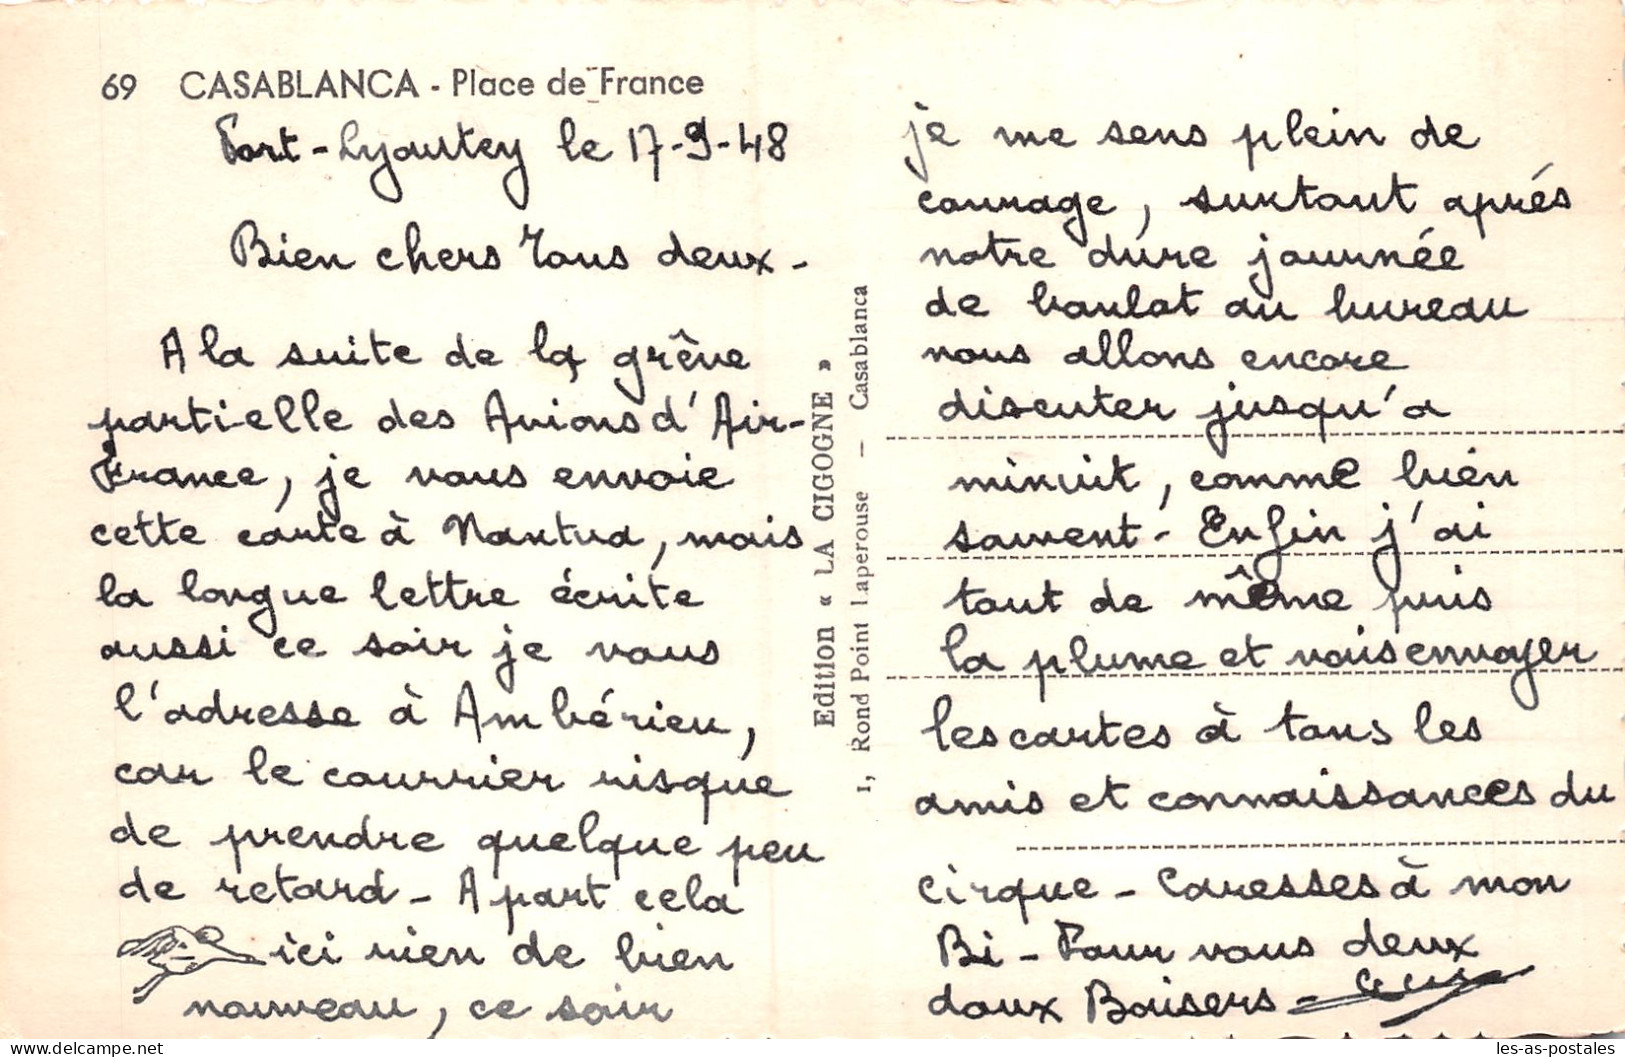 69 CASABLANCA - Place de France
Port-Lyautey le 17-9-48
Bien chers Tous deux-
A la suite de la grêve
partielle des Avions d'Air-
France, je vous envoie
cette carte à Nantua, mais
la longue lettre écrite
aussi ce soir je vous
l'adresse à Ambérieu,
car le courrier risque
de prendre quelque peu
de retard - A part cela
ici rien de bien
nouveau, ce soir
Edition « LA CIGOGNE »
1, Rond Point Laperouse - Casablanca
je me sens plein de
courage, surtout après
notre dure journée
de boulot au bureau
nous allons encore
discuter jusqu'a
minuit, comme bien
souvent - Enfin j'ai
tout de même puis
la plume et vais envoyer
les cartes à tous les
amis et connaissances du
cirque - Caresses à mon
Bi - Pour vous deux
doux Baisers -
les-as-postales